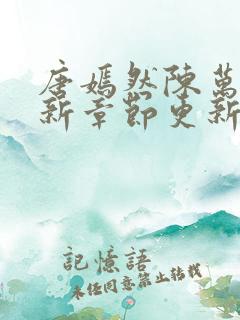 唐嫣然陳萬
新章節更新
記憶語
未經同意禁止轉載